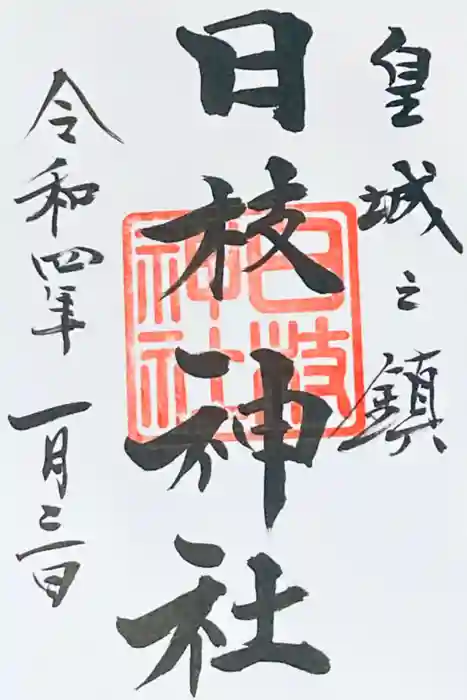 皇城之鎮
日枝神社
日枝神社
令和四年一月三日